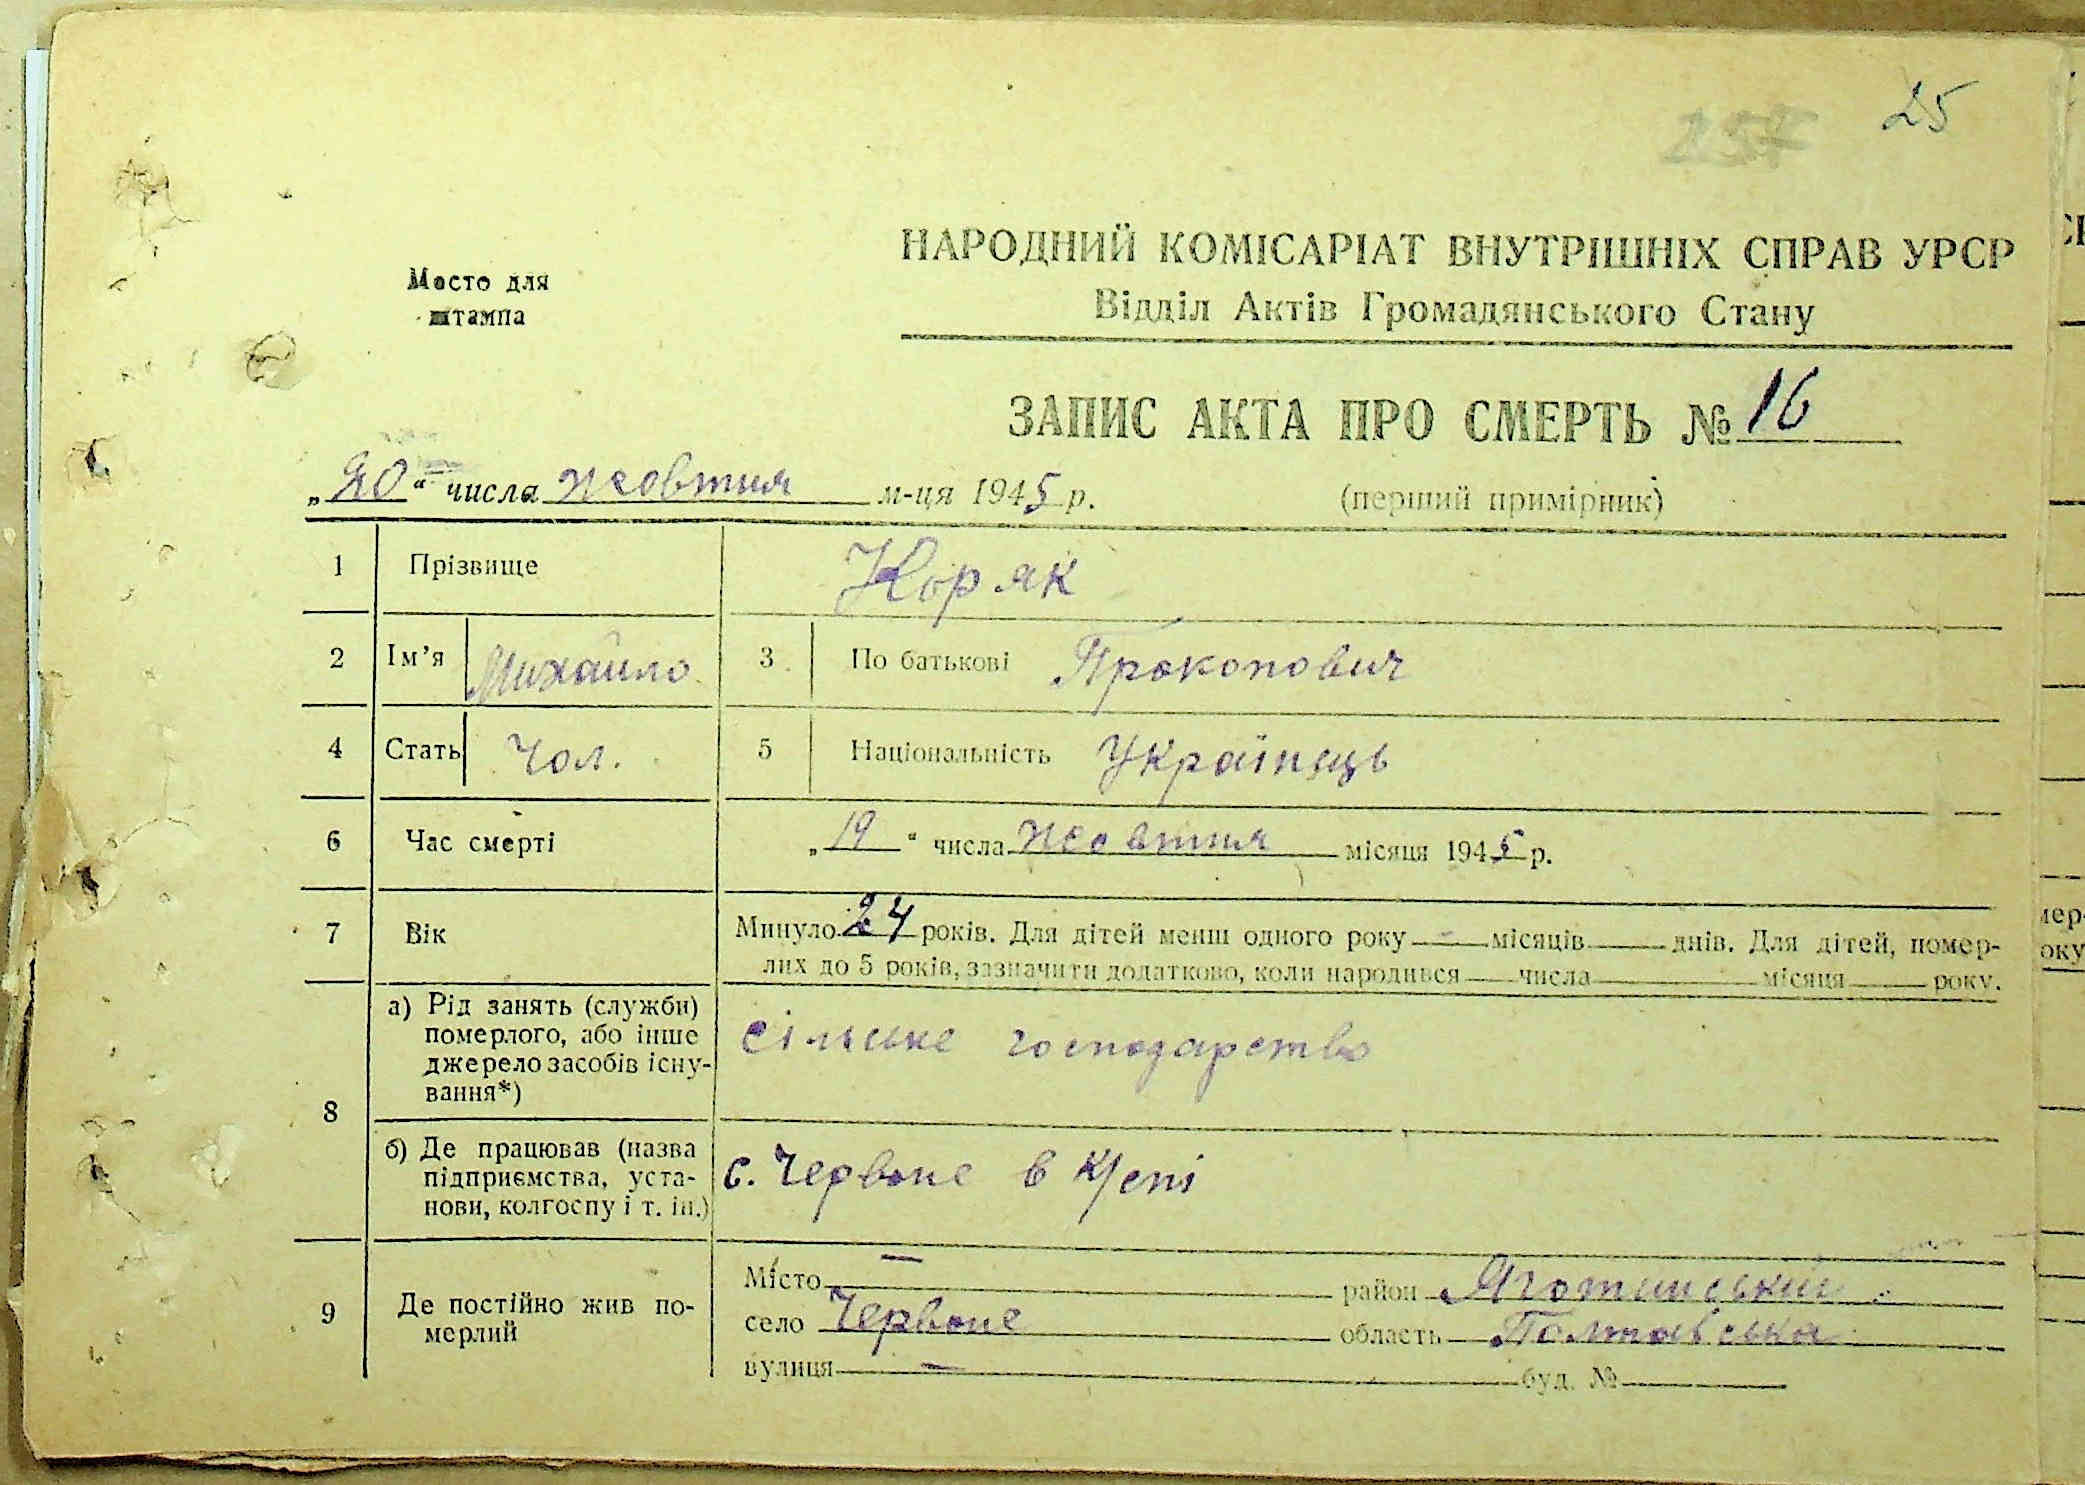 25
257
НАРОДНИЙ КОМІСАРІАТ ВНУТРІШНІХ СПРАВ УРСР
Место для
штампа
Відділ Актів Громадянського Стану
ЗАПИС АКТА ПРО СМЕРТЬ № 16
„20“ числа жовтня м-ця 1945 р. (перший примірник)
1 Прізвище Коряк
2 Ім’я Михайло 3 По батькові Прокопович
4 Стать Чол. 5 Національність Українець
6 Час смерті „19“ числа жовтня місяця 1945 р.
7 Вік Минуло 24 років. Для дітей менш одного року — місяців — днів. Для дітей, помер-
лих до 5 років, зазначити додатково, коли народився — числа місяця року.
8 а) Рід занять (служби)
померлого, або інше
джерело засобів існу-
вання*)
сільське господарство
б) Де працював (назва
підприємства, уста-
нови, колгоспу і т. ін.)
с. Червоне в к/спі
9 Де постійно жив по-
мерлий
Місто — район Яготинський
село Червоне область Полтавська
вулиця — буд. №